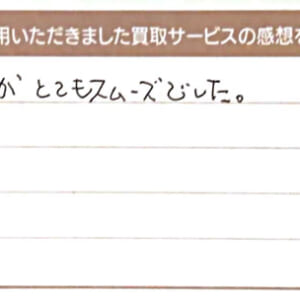 用いただきました買取サービスの感想を
がとてもスムーズでした。